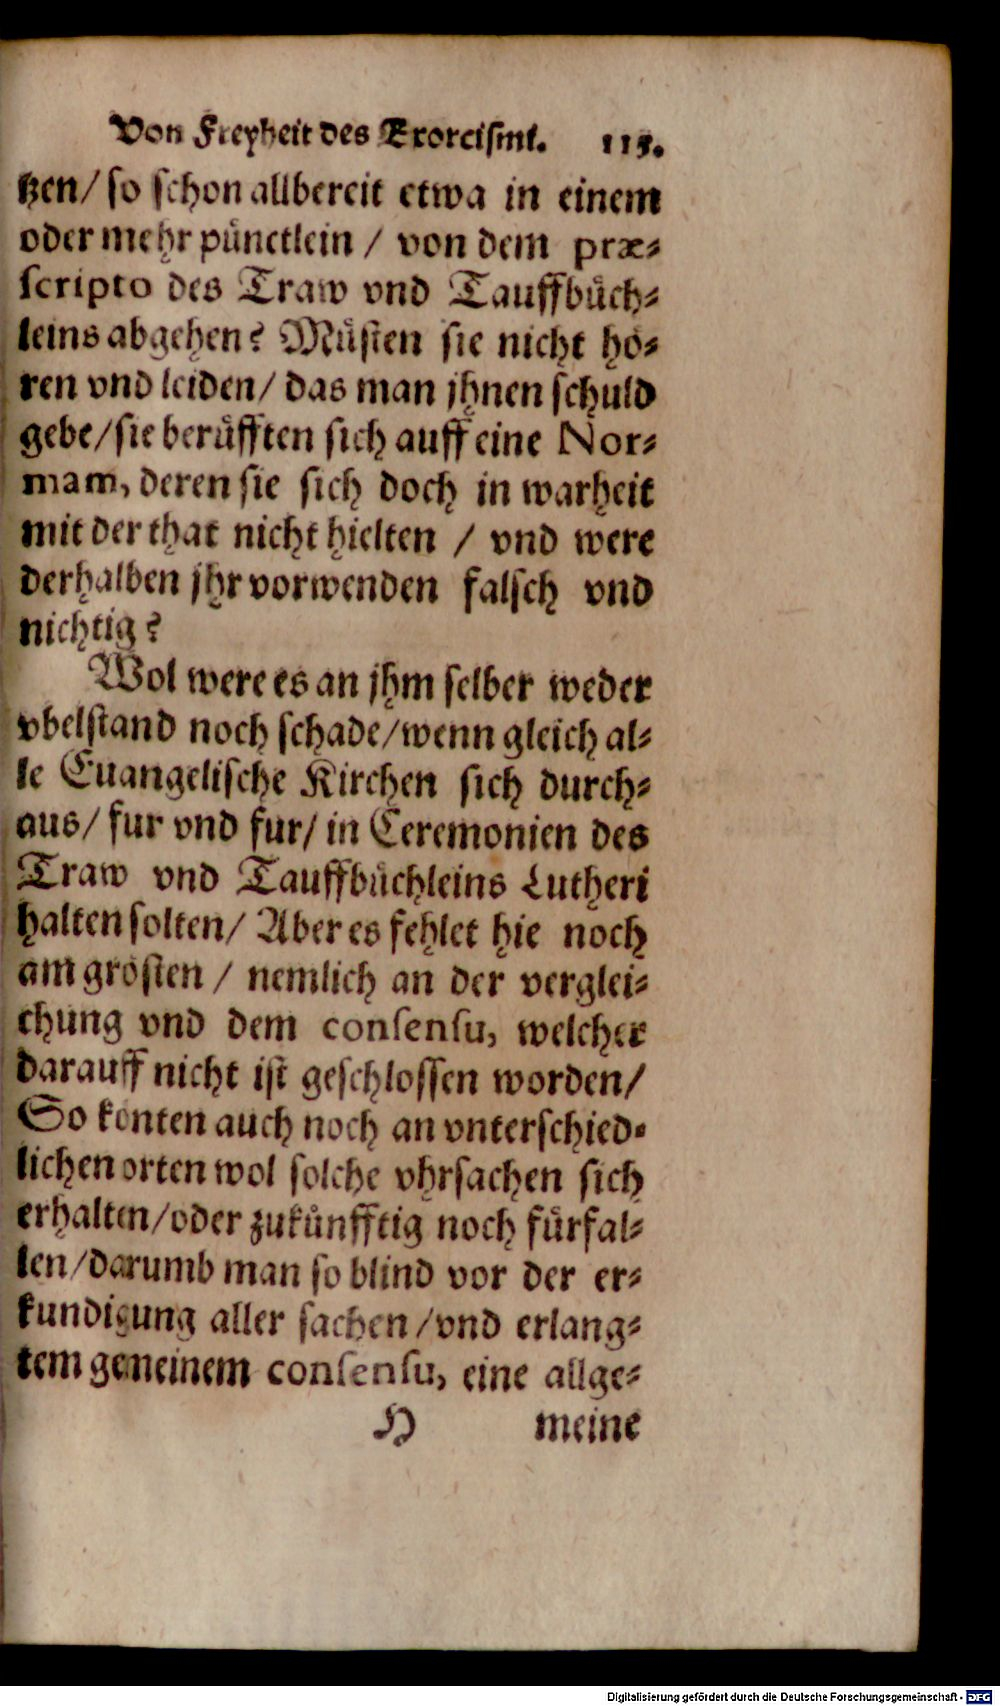 Von Freyheit des Exorcismi. 115.
tzen/ so schon allbereit etwa in einem
oder mehr pünctlein / von dem præ-
scripto des Traw vnd Tauffbüch-
leins abgehen? Müsten sie nicht hö-
ren vnd leiden/ das man jhnen schuld
gebe/sie berüfften sich auff eine Nor-
mam, deren sie sich doch in warheit
mit der that nicht hielten / vnd were
derhalben jhr vorwenden falsch vnd
nichtig?
Wol were es an jhm selber weder
vbelstand noch schade/wenn gleich al-
le Euangelische Kirchen sich durch-
aus/ fur vnd fur/ in Ceremonien des
Traw vnd Tauffbüchleins Lutheri
halten solten/ Aber es fehlet hie noch
am grösten / nemlich an der verglei-
chung vnd dem consensu, welcher
darauff nicht ist geschlossen worden/
So könten auch noch an vnterschied-
lichen orten wol solche vhrsachen sich
erhalten/oder zukünfftig noch fürfal-
len/darumb man so blind vor der er-
kundigung aller sachen /vnd erlang-
tem gemeinem consensu, eine allge-
H meine
Digitalisierung gefördert durch die Deutsche Forschungsgemeinschaft - DFG